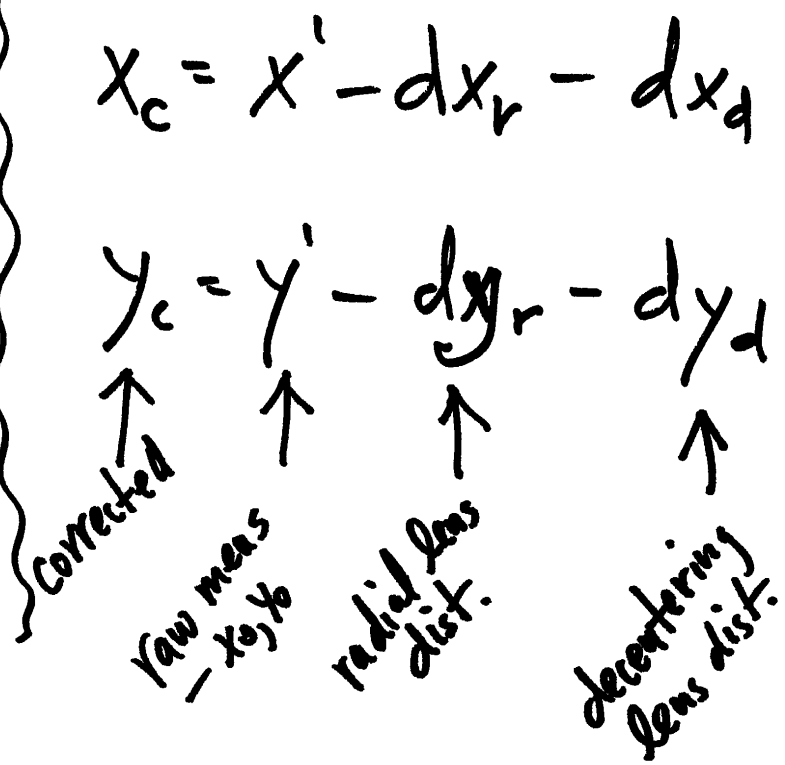 x_c = x' - dx_r - dx_d
y_c = y' - dy_r - dy_d
corrected
raw meas
- x₀, y₀
radial lens
dist.
decentering
lens dist.